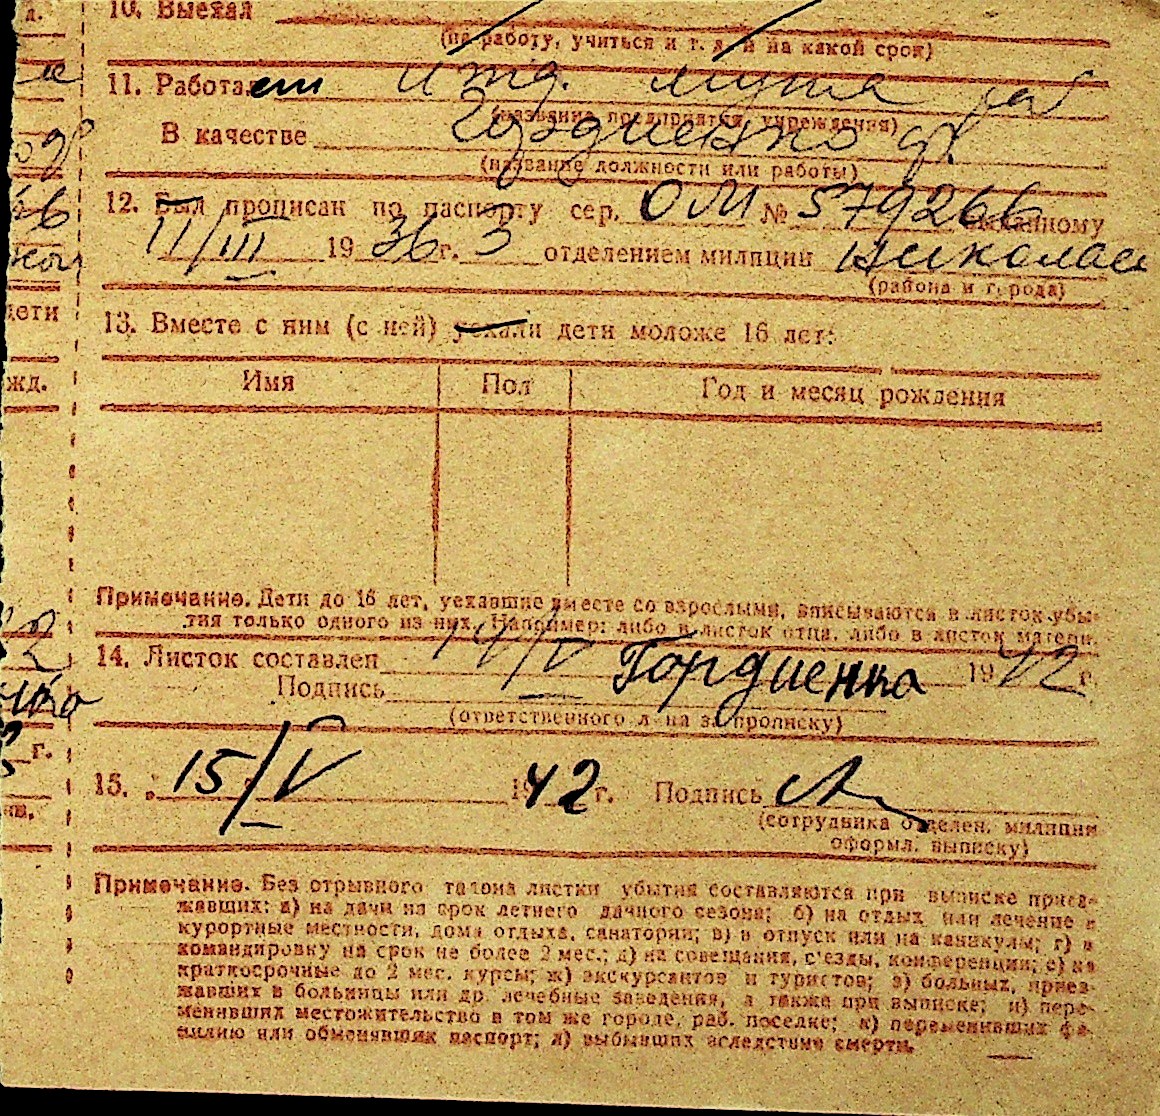 10. Выехал
(на работу, учиться и т. д. и на какой срок)
11. Работает итд. мужа
(название предприятия, учреждения)
В качестве Гордиенко
(название должности или работы)
12. Был прописан по паспорту сер. ОМ № 579266 выданному
11/III 1936 г. 3 отделением милиции Николаев
(района и города)
13. Вместе с ним (с ней) уехали дети моложе 16 лет:
дети
Имя Пол Год и месяц рождения
жд.
Примечание. Дети до 16 лет, уехавшие вместе со взрослыми, вписываются в листок убы-
тия только одного из них. Например: либо в листок отца, либо в листок матери.
14. Листок составлен 14/V 1942 г.
Подпись Гордиенко
(ответственного л на за прописку)
г.
15. „ 15/V 1942 г. Подпись
(сотрудника отделен. милиции
оформл. выписку)
Примечание. Без отрывного талона листки убытия составляются при выписке приез-
жавших: а) на дачи на срок летнего дачного сезона; б) на отдых или лечение в
курортные местности, дома отдыха, санатории; в) в отпуск или на каникулы; г) в
командировку на срок не более 2 мес.; д) на совещания, с'езды, конференции; е) на
краткосрочные до 2 мес. курсы; ж) экскурсантов и туристов; з) больных, приез-
жавших в больницы или др. лечебные заведения, а также при выписке; и) пере-
менивших местожительство в том же городе, раб. поселке; к) переменивших фа-
милию или обменявших паспорт; л) выбывших вследствие смерти.